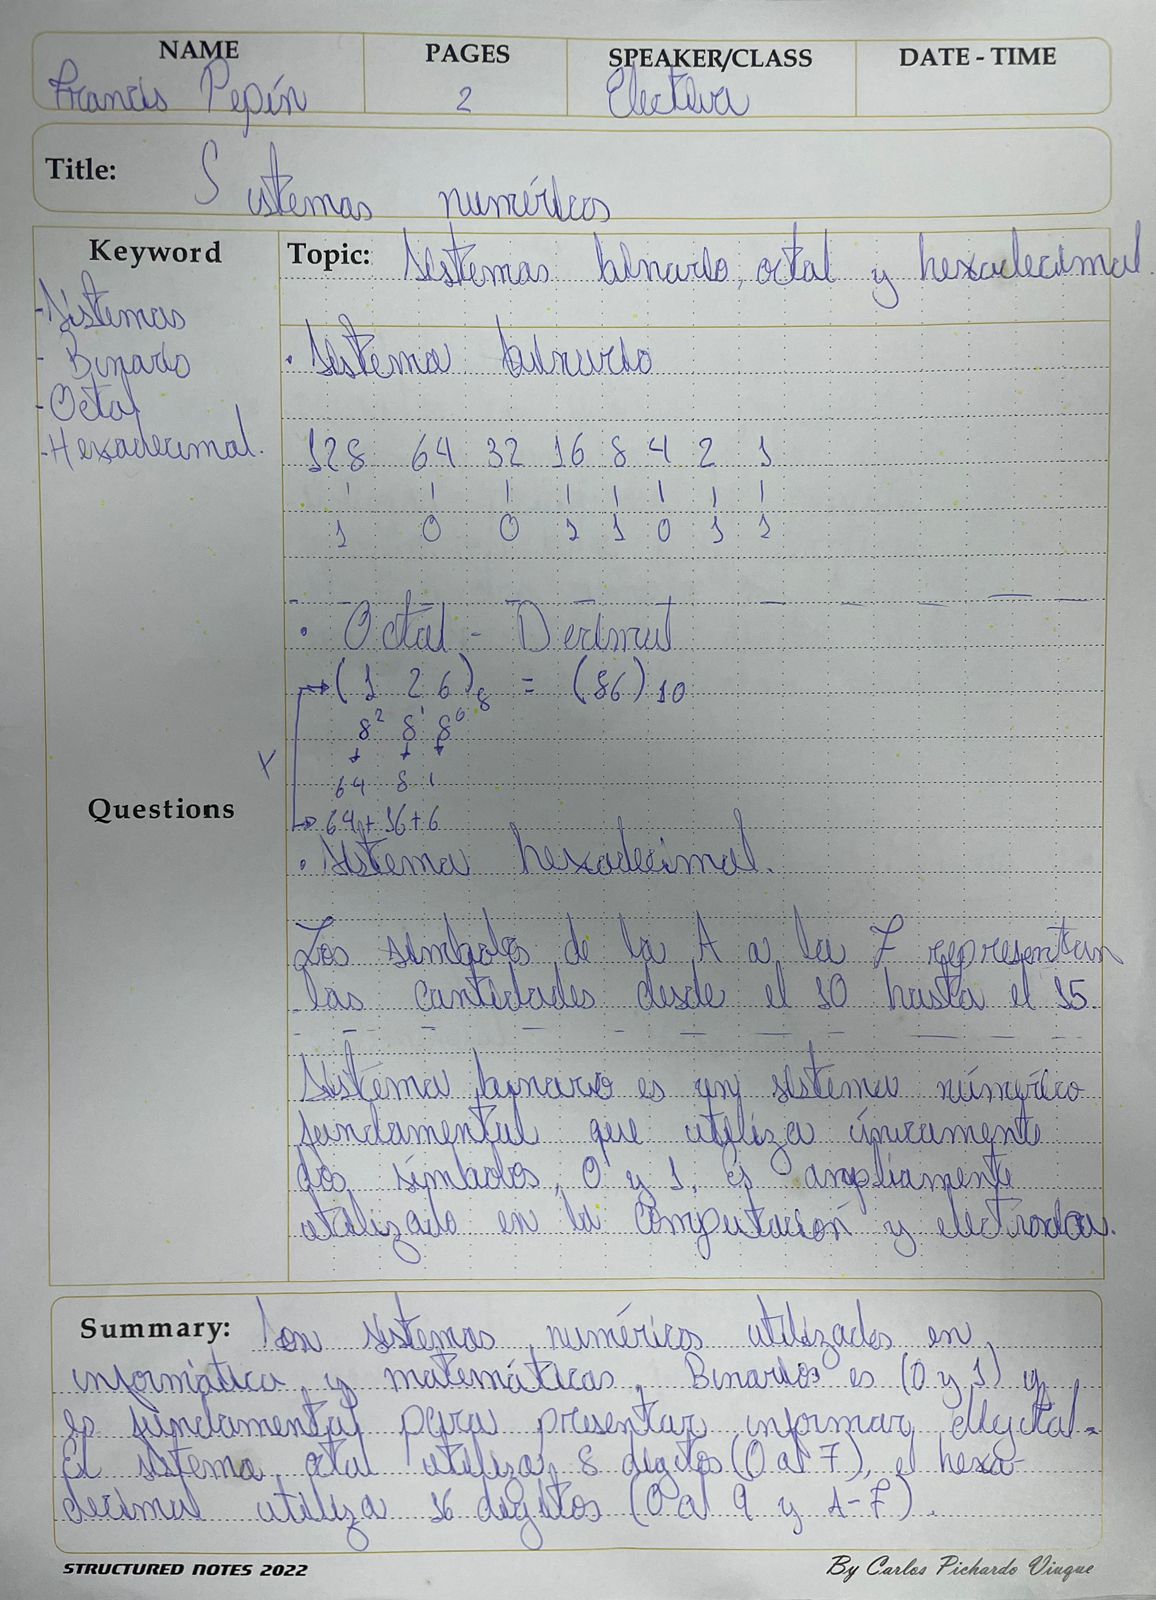 NAME PAGES SPEAKER/CLASS DATE - TIME
Francis Pepín 2 Electiva
Title: Sistemas numéricos
Keyword
-Sistemas
- Binario
-Octal
-Hexadecimal.
Questions
Topic: Sistemas binario, octal y hexadecimal
• Sistema binario
128 64 32 16 8 4 2 1
1 0 0 1 1 0 1 1
• Octal - Decimal
(1 2 6)8 = (86)10
8² 8¹ 8⁰
64 8 1
64 + 16 + 6
• Sistema hexadecimal.
Los símbolos de la A a la F representan
las cantidades desde el 10 hasta el 15.
Sistema binario es un sistema númerico
fundamental que utiliza únicamente
dos símbolos, 0 y 1, es ampliamente
utilizado en la computación y
Summary: Son sistemas numéricos utilizados en
informática y matemáticas, Binarios es (0 y 1) y
es fundamental para presentar informar digital.
El sistema octal utiliza 8 digitos (0 al 7), el hexa-
decimal utiliza 16 digitos (0 al 9 y A-F).
STRUCTURED NOTES 2022 By Carlos Pichardo Viuque